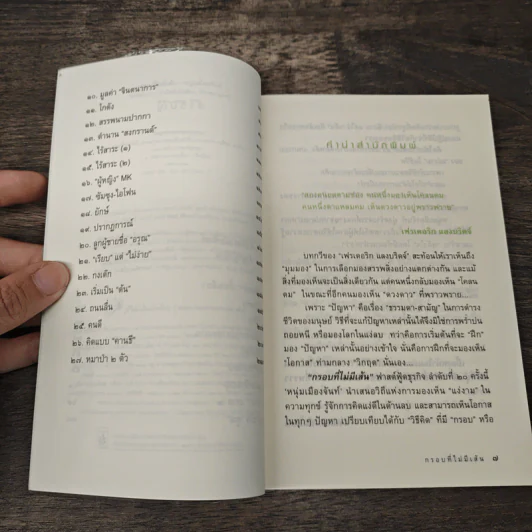 ๑๐. มูลค่า "จินตนาการ"
๑๑. โกดัง
๑๒. สรรพนามปากกา
๑๓. ตำนาน "สงกรานต์"
๑๔. ไร้สาระ (๑)
๑๕. ไร้สาระ (๒)
๑๖. "ผู้หญิง" MK
๑๗. ซัมซุง-ไอโฟน
๑๘. ยักษ์
๑๙. ปรากฏการณ์
๒๐. ลูกผู้ชายชื่อ "อรุณ"
๒๑. "เรียบ" แต่ "ไม่ง่าย"
๒๒. กงเต๊ก
๒๓. เริ่มเป็น "ต้น"
๒๔. ถนนลื่น
๒๕. คนดี
๒๖. คิดแบบ "คานธี"
๒๗. หมาป่า ๒ ตัว
คำนำสำนักพิมพ์
"สองคนยลตามช่อง คนหนึ่งมองเห็นโคลนตม
คนหนึ่งตาแหลมคม เห็นดวงดาวอยู่พราวพราย"
เฟรเดอริก แลงบริดจ์
บทกวีของ "เฟรเดอริก แลงบริดจ์" สะท้อนให้เราเห็นถึง
"มุมมอง" ในการเลือกมองสรรพสิ่งอย่างแตกต่างกัน และแม้
สิ่งที่มองเห็นจะเป็นสิ่งเดียวกัน แต่คนหนึ่งกลับมองเห็น "โคลน
ตม" ในขณะที่อีกคนมองเห็น "ดวงดาว" ที่พราวพราย
เพราะ "ปัญหา" คือเรื่อง "ธรรมดา-สามัญ" ในการดำรง
ชีวิตของมนุษย์ วิธีที่จะแก้ปัญหาเหล่านั้นได้จึงมิใช่การพร่ำบ่น
ถอยหนี หรือมองโลกในแง่ร้าย ทว่าคือการเริ่มต้นที่จะ "ฝึก"
มอง "ปัญหา" เหล่านั้นอย่างเข้าใจ นั่นคือการฝึกที่จะมองเห็น
"โอกาส" ท่ามกลาง "วิกฤต" นั่นเอง
"กรอบที่ไม่มีเส้น" ฟาสต์ฟู้ดธุรกิจ ลำดับที่ ๒๐ ครั้งนี้
"หนุ่มเมืองจันท์" นำเสนอวิถีแห่งการมองเห็น "แง่งาม" ใน
ความทุกข์ รู้จักการคิดแง่ดีในด้านลบ และสามารถเห็นโอกาส
ในทุกๆ ปัญหา เปรียบเทียบได้กับ "วิธีคิด" ที่มี "กรอบ" หรือ
กรอบที่ไม่มีเส้น ๗